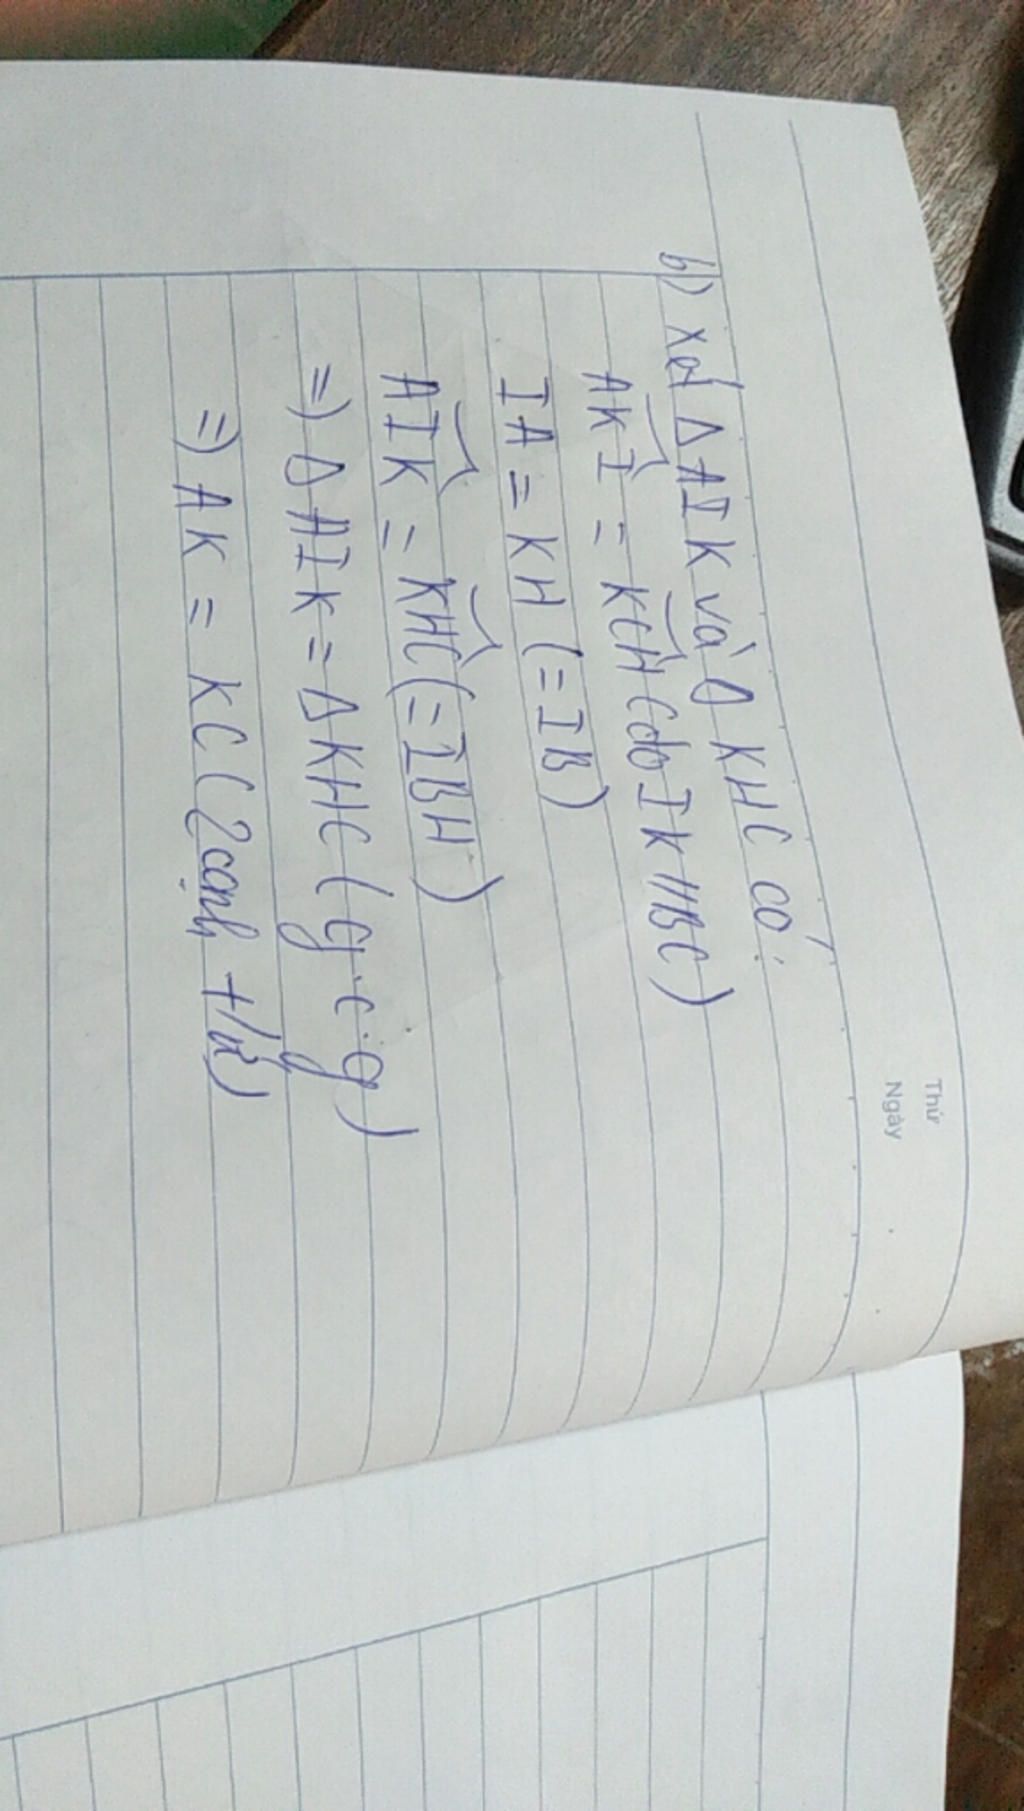 Thứ
Ngày
b) Xét Δ AIK và Δ KHC có:
AKI = KCH (do IK // BC)
IA = KH (= IB)
AIK = KHC (= IBH)
=) Δ AIK = Δ KHC (g.c.g)
=) AK = KC (2 cạnh t/ứ)